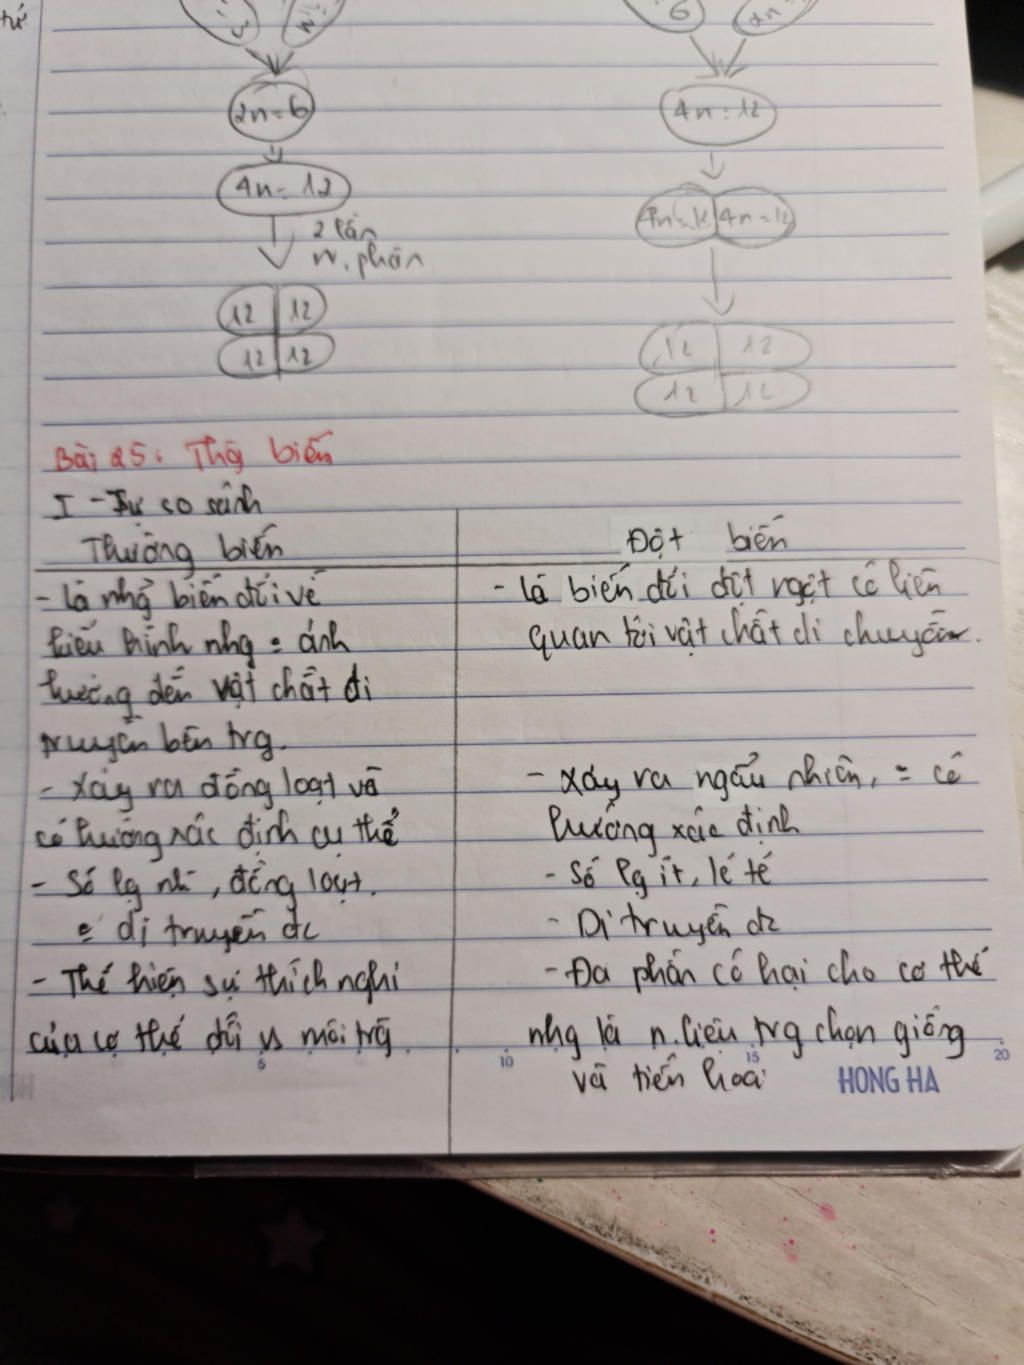 tử
6
2n=6
4n=12
4n=12
4n=12 4n=12
2 lần
n.phân
12 12
12 12
12 12
12 12
Bài 25: Thg biến
I - Sự so sánh
Thường biến
Đột biến
- là nhg biến đổi về
kiểu hình nhg = ảnh
hưởng đến vật chất di
truyền bên trg.
- Xảy ra đồng loạt và
có hướng xác định cụ thể
- Số lg nh`, đồng loạt.
= di truyền đc
- Thể hiện sự thích nghi
của cơ thể đối vs môi trg
- là biến đổi đột ngột có liên
quan tới vật chất di chuyền.
- Xảy ra ngẫu nhiên, = có
hướng xác định
- Số lg ít, lẻ tẻ
- Di truyền đc
- Đa phần có hại cho cơ thể
nhg là n.liệu trg chọn giống
và tiến hoá
5 10 15 20
HONG HA